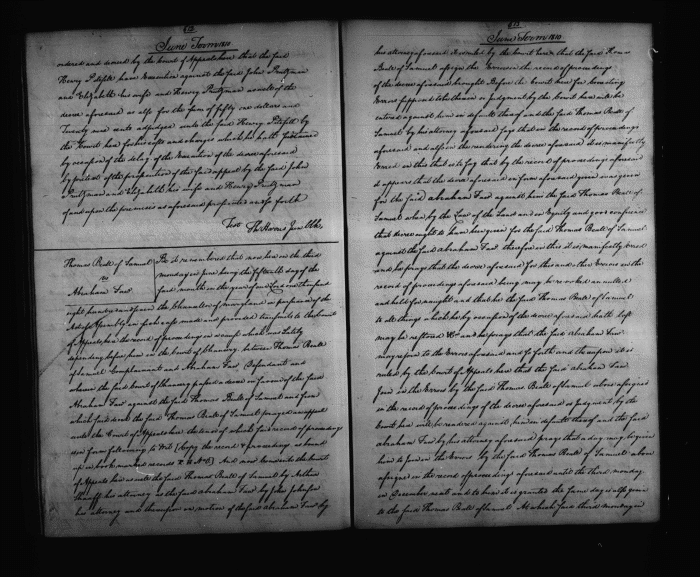 612
June Term 1810
ordered and decreed by the Court of Appeals here that the said
Henry Petefeth have Execution against the said John Pentzman
and Elizabeth his wife and Henry Pentzman as well of the
decree aforesaid as also for the sum of fifty one dollars and
Twenty nine cents adjudged unto the said Henry Petefeth by
the Court here for his costs and charges which he hath sustained
by occasion of the delay of the Execution of the decree aforesaid
by pretext of the prosecution of the said appeal by the said John
Pentzman and Elizabeth his wife and Henry Pentzman
of and upon the premises as aforesaid prosecuted and so forth
Test Th Harris Jun Clk
Thomas Beale of Samuel
vs
Abraham Faw
Be it remembered that now here on the third
monday in June being the Eighteenth day of the
said month in the year of our Lord one thousand
eight hundred and the Chancellor of Maryland in pursuance of the
Act of Assembly in such case made and provided transmits to the Court
of Appeals here the record of proceedings in a cause which was lately
depending before him in the Court of Chancery between Thomas Beale
of Samuel Complainant and Abraham Faw Defendant and
wherein the said Court of Chancery passed a decree in favour of the said
Abraham Faw against the said Thomas Beale of Samuel and from
which said decree the said Thomas Beale of Samuel prayed an appeal
unto the Court of Appeals here the tenor of which said record of proceedings
is in form following to Wit (Copy the record & proceedings as bound
up in book marked records) And now here unto the Court
of Appeals here as well the said Thomas Beale of Samuel by Arthur
Shaaff his attorney as the said Abraham Faw by John Johnson
his attorney and thereupon on motion of the said Abraham Faw by
613
June Term 1810
his attorney aforesaid it is ruled by the Court here that the said Thomas
Beale of Samuel assign the Errors in the record of proceedings
of the decree aforesaid brought before the Court here for correcting
Errors supposed to be therein or judgment by the Court here will be
entered against him on default thereof and the said Thomas Beale of
Samuel by his attorney aforesaid says that in the record of proceedings
aforesaid and also in the rendering the decree aforesaid it is manifestly
Erred in this that is to say that by the record of proceedings aforesaid
it appears that the decree aforesaid in form aforesaid given was given
for the said Abraham Faw against him the said Thomas Beale of
Samuel when by the Law of the Land and in Equity and good conscience
that decree ought to have been given for the said Thomas Beale of Samuel
against the said Abraham Faw therefore in this it is manifestly Erred
and he prays that the decree aforesaid for this and other Errors in the
record of proceedings aforesaid being may be revoked annulled
and held for nought and that he the said Thomas Beale of Samuel
to all things which he by occasion of the decree aforesaid hath lost
may be restored &c and he prays that the said Abraham Faw
may rejoin to the Errors aforesaid and so forth and thereupon it is
ruled by the Court of Appeals here that the said Abraham Faw
Join in the Errors by the said Thomas Beale of Samuel above assigned
in the record of proceedings of the decree aforesaid or judgment by the
Court here will be rendered against him on default thereof and the said
Abraham Faw by his attorney aforesaid prays that a day may be given
him to Join in the Errors by the said Thomas Beale of Samuel above
assigned in the record of proceedings aforesaid until the third monday
in December next and to him it is granted the same day is also given
to the said Thomas Beale of Samuel At which said third monday in